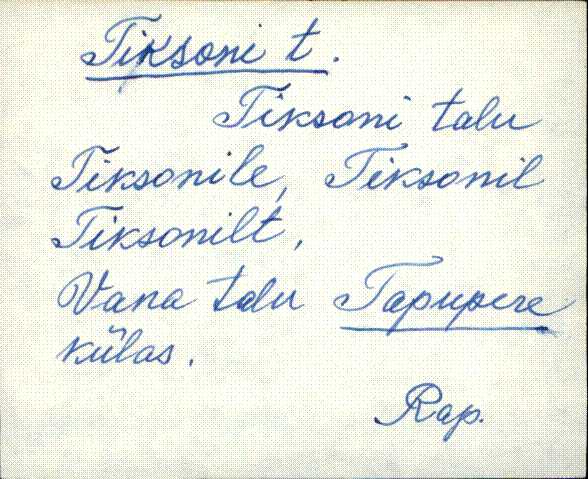 Tiksoni t.
Tiksoni talu
Tiksonile, Tiksonil
Tiksonilt,
Vana talu Tapupere
külas.
Rap.